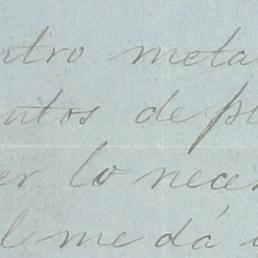 ntro meta
ntos de pr
er lo nece
l me dá